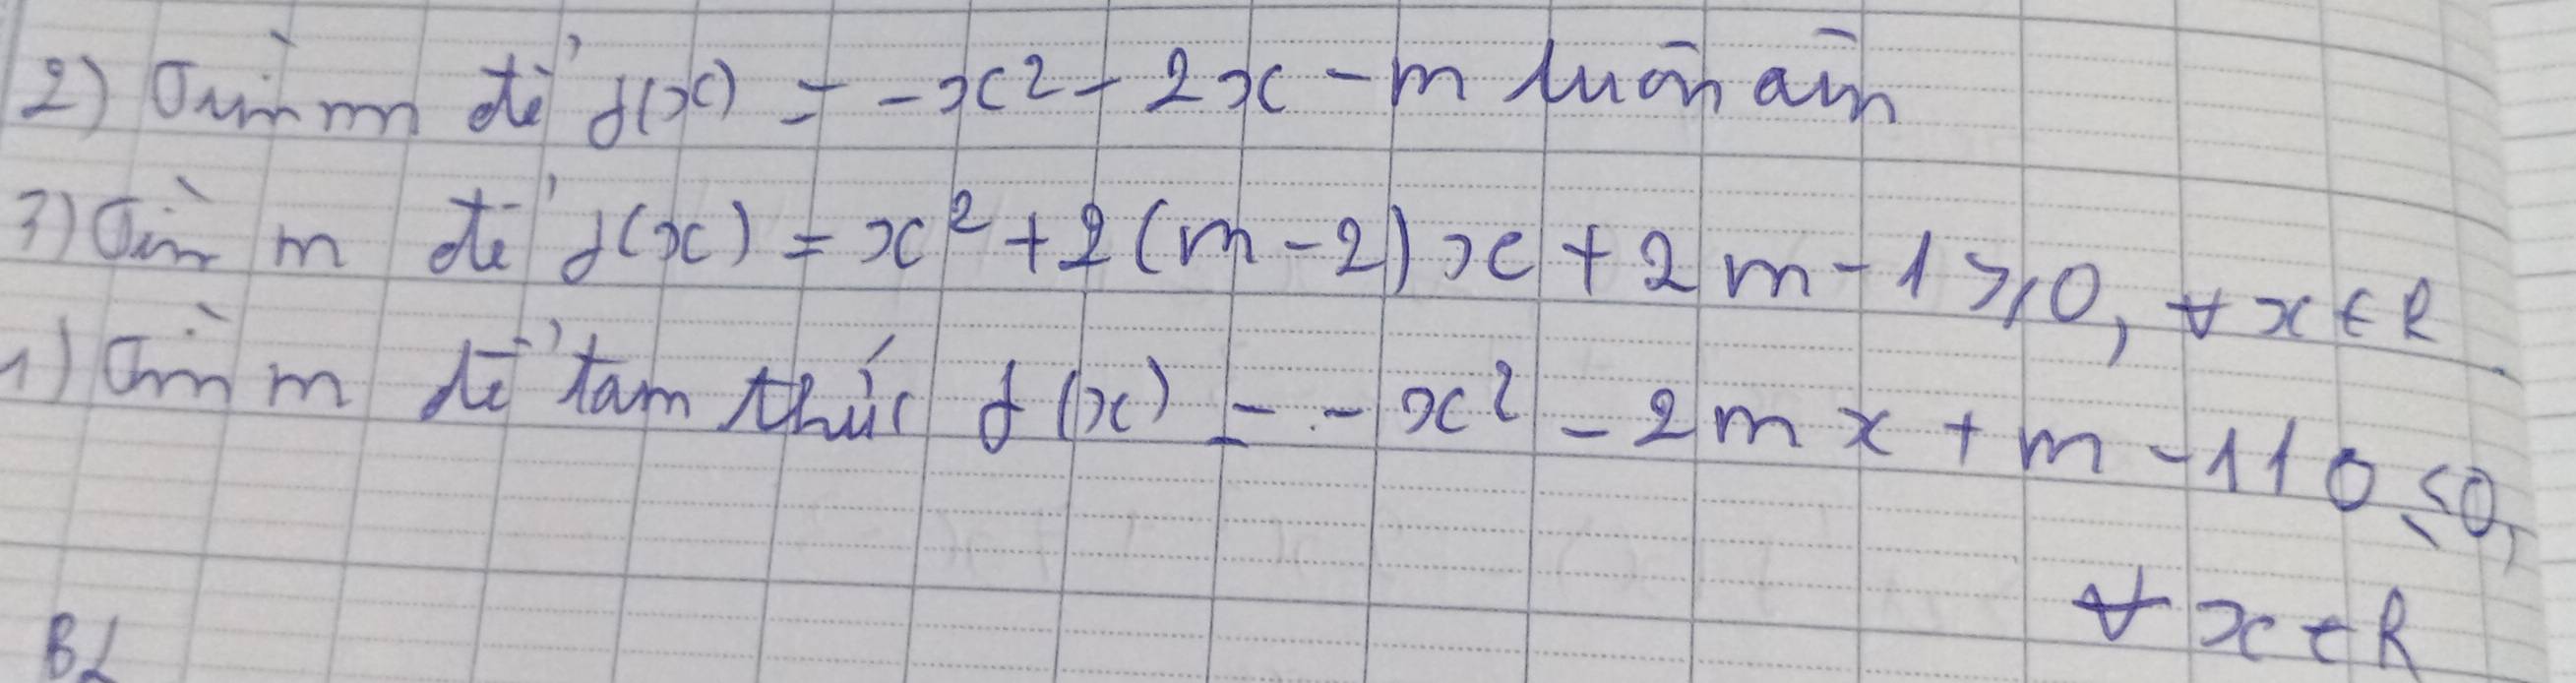 2) Tìm m để f(x) = -x² - 2x - m luôn âm
3) Tìm m để f(x) = x² + 2(m-2)x + 2m - 1 ≥ 0, ∀ x ∈ R
1) Tìm m để tam thức f(x) = -x² - 2mx + m - 110 ≤ 0,
∀ x ∈ R
BL